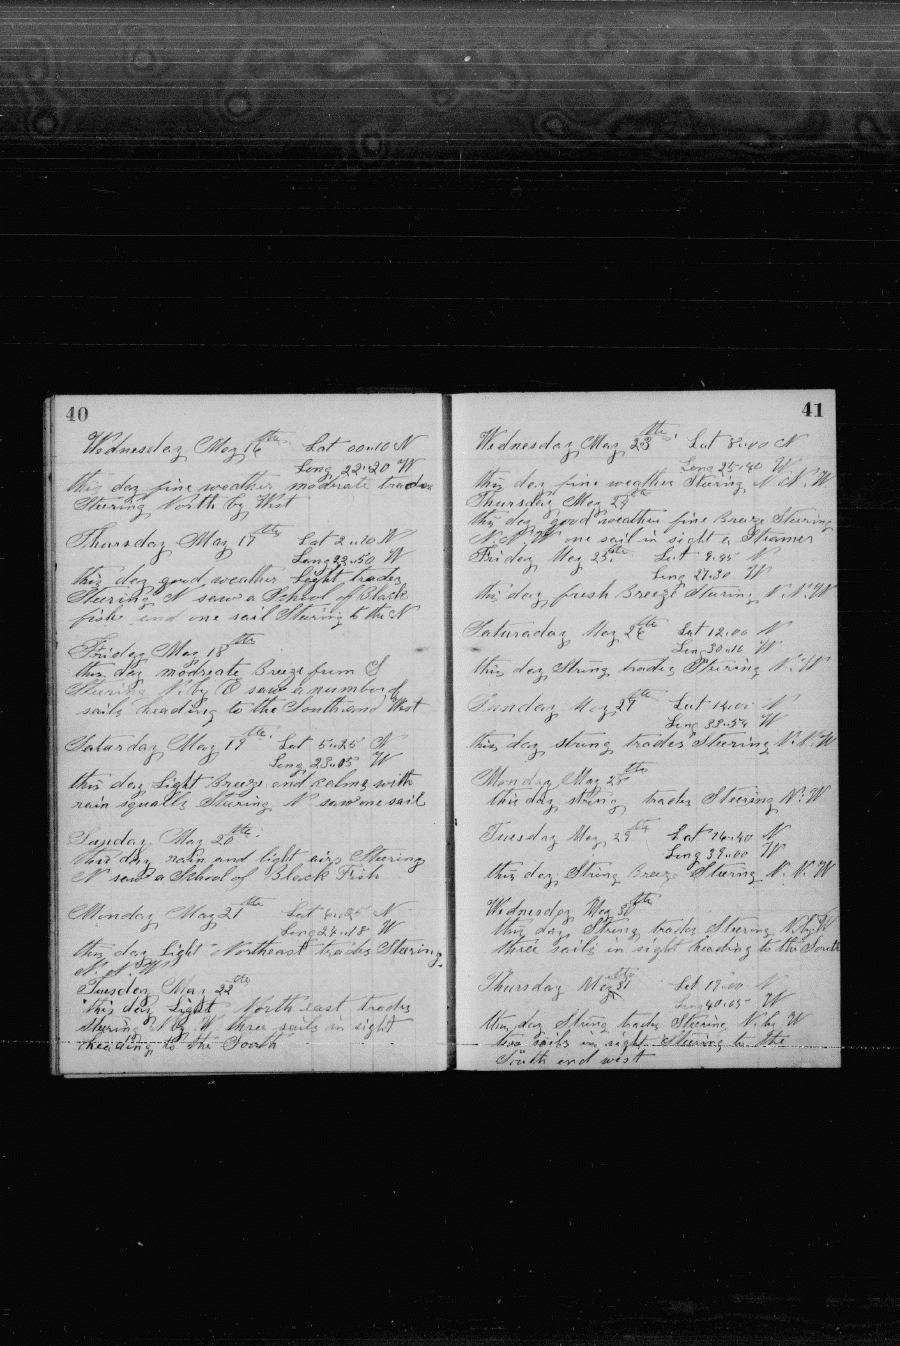 40
Wednesday May 16th Lat 00..10 N
Long 22..20 W
this day fine weather moderate trades
Steering North by West
Thursday May 17th Lat 2..10 N
Long 23..50 W
this day good weather Light trades
Steering N saw a School of Black
fish and one sail Steering to the N
Friday May 18th
this day modreate Breeze from S
Steering N. by saw a number of
sails heading to the South and West
Saturday May 19th Lat 5..25 N
Long 23..05 W
this day Light Breeze and calms with
rain squalls Steering N saw one sail
Sunday May 20th
this day rain and light airs Steering
N saw a School of Black Fish
Monday May 21th Lat 6..25 N
Long 24..18 W
this day Light Northeast trades Steering
N. N. W
Tuesday May 22th
this day Light North east trades
Steering N by W three sails in sight
heading to the South
41
Wednesday May 23th Lat 8..00 N
Long 25..40 W
this day fine weather Stering N. N. W
Thursday May 24th
this day good weather fine Breeze Steering
N. N. W one sail in sight a Steamer
Friday May 25th Lat 9..45 N
Long 27..30 W
this day fresh Breeze Stering N. N. W
Saturaday May 26th Lat 12..00 N
Long 30..16 W
this day Strong trades Steering N. W
Sunday May 27th Lat 14..00 N
Long 33..54 W
this day strong trades Steering N. N. W
Monday May 28th
this day strong trades Steering N. W
Tuesday May 29th Lat 16..40 N
Long 39..00 W
this day Strong Breeze Steering N. N. W
Wednesday May 30th
this day Strong trades Steering N by W
three sails in sight heading to the South
Thursday May 31th Lat 19..00 N
Long 40..05 W
this day Strong trades Steering N. by W
two sails in sight Steering to the
South and west